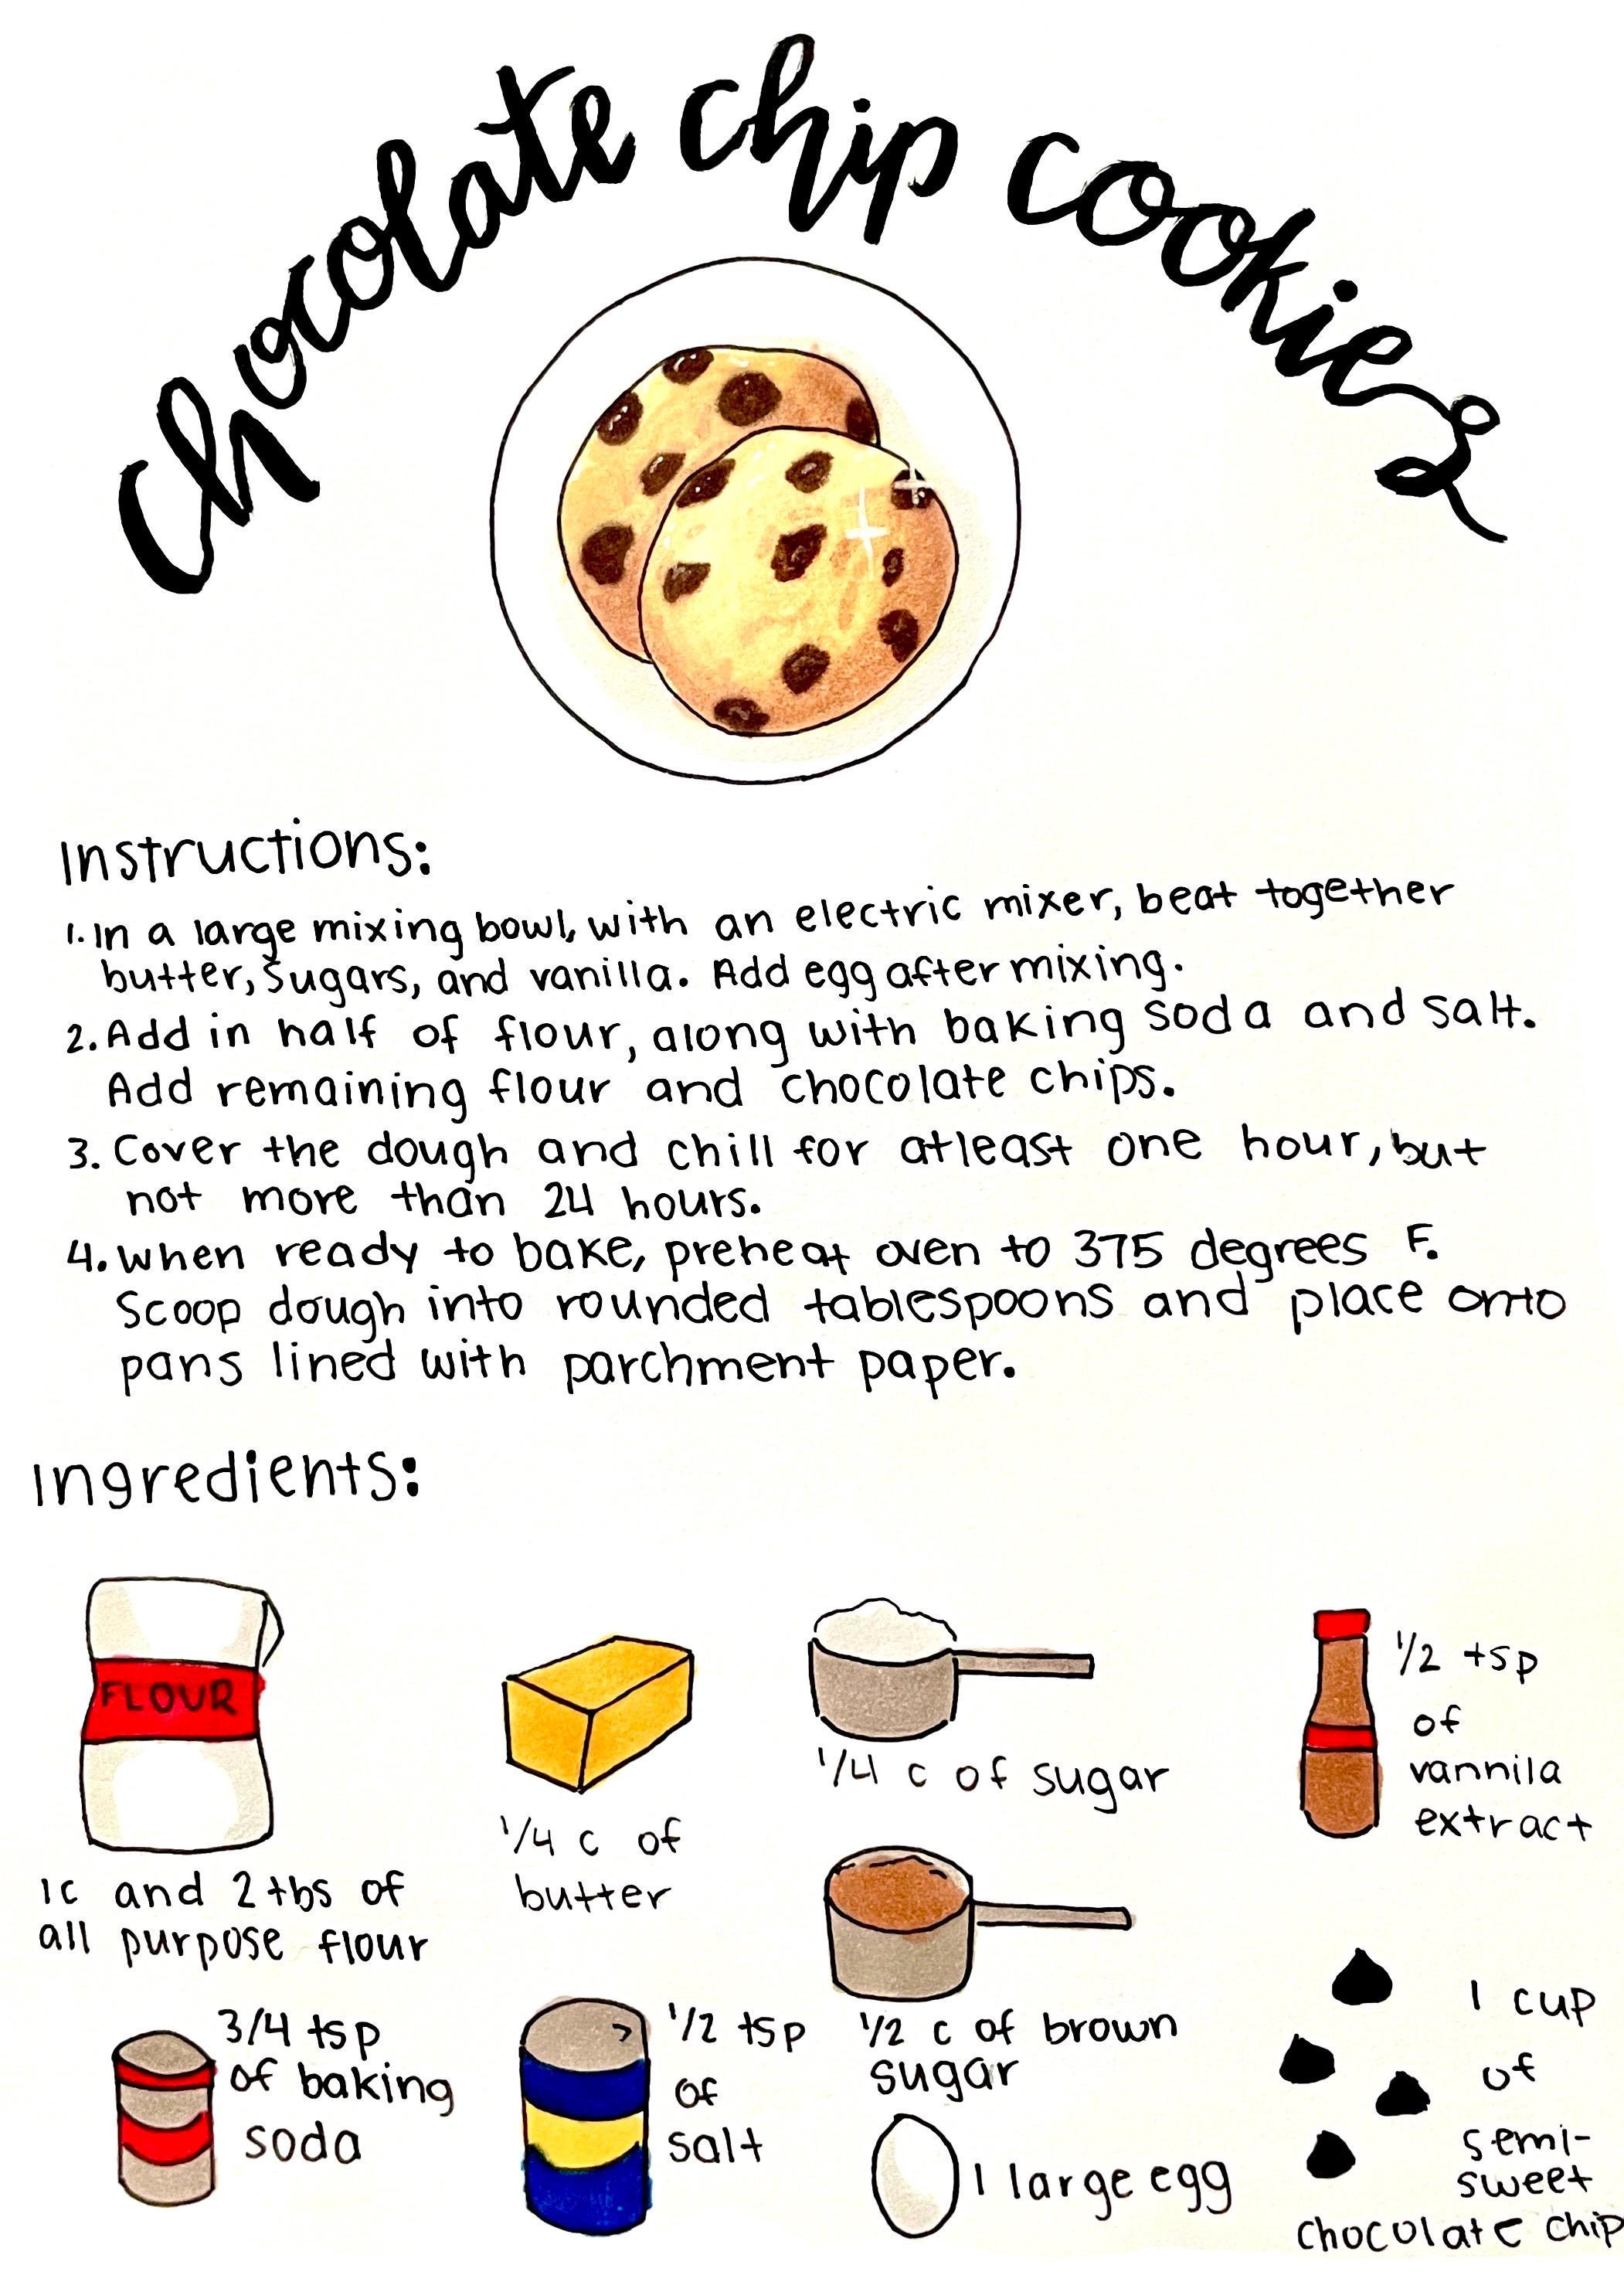 chocolate chip cookies
Instructions:
1. In a large mixing bowl, with an electric mixer, beat together
butter, sugars, and vanilla. Add egg after mixing.
2. Add in half of flour, along with baking soda and salt.
Add remaining flour and chocolate chips.
3. Cover the dough and chill for atleast one hour, but
not more than 24 hours.
4. When ready to bake, preheat oven to 375 degrees F.
Scoop dough into rounded tablespoons and place onto
pans lined with parchment paper.
Ingredients:
FLOUR
1c and 2 tbs of
all purpose flour
1/4 c of
butter
1/4 c of sugar
1/2 tsp
of
vannila
extract
3/4 tsp
of baking
soda
1/2 tsp
of
salt
1/2 c of brown
sugar
1 large egg
1 cup
of
semi-
sweet
chocolate chip